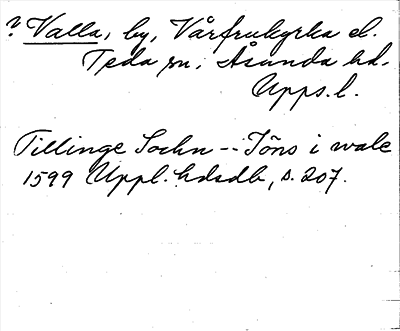 ? Valla, by, Vårfrukyrka el.
Teda sn, Åsunda hd.
Upps. l.
Tillinge Sochn -- Jöns i wale
1599 Uppl. hdsdb, s. 207.